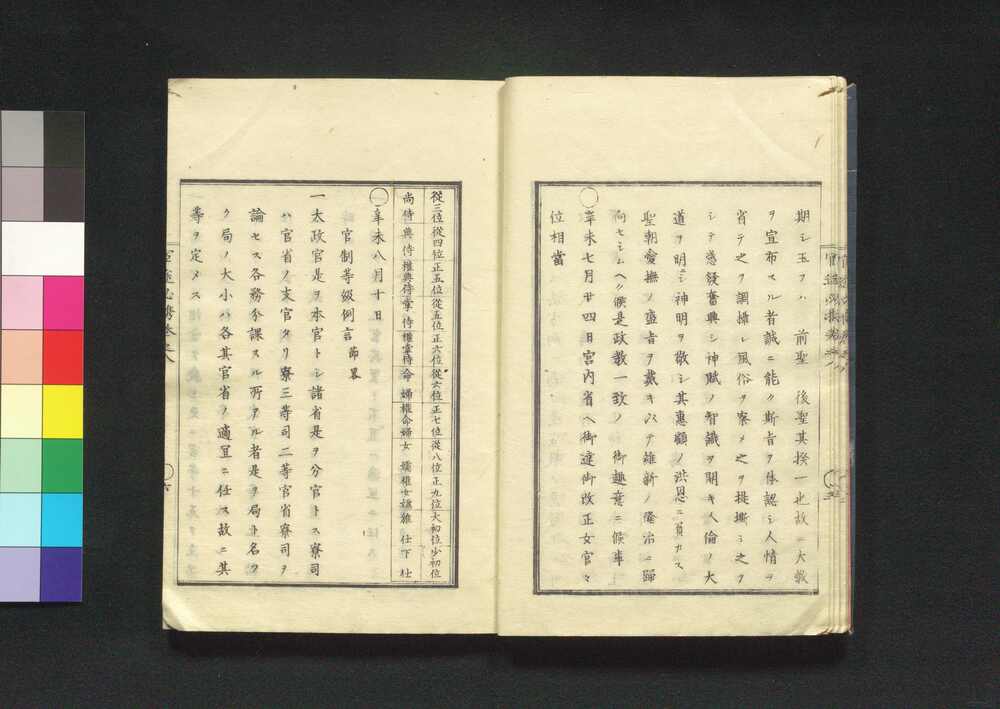 期シ玉フハ 前聖 後聖其揆一也故ニ大教
ヲ宣布スル者誠ニ能ク斯旨ヲ体認シ人情ヲ
省テ之ヲ調摂シ風俗ヲ察メ之ヲ提撕シ之ヲ
シテ感發奮興シ神賦ノ智識ヲ開キ人倫ノ大
道ヲ明ニシ神明ヲ敬シ其惠顧ノ洪恩ニ負カス
聖朝愛撫ノ盛旨ヲ戴キ以テ維新ノ隆治ニ歸
向セシムヘク候是政教一致ノ御趣意ニ候事
辛未七月廿四日宮内省ヘ御達御改正女官々
位相當
從三位 從四位 正五位 從五位 正六位 從六位 正七位 從八位 正九位 大初位 少初位
尚侍 典侍 權典侍 掌侍 權掌侍 命婦 權命婦 女嬬 權女嬬 雜仕 下仕
辛未八月十日
官制等級例言 節畧
一太政官是ヲ本官トシ諸省是ヲ分官トス寮司
ハ官省ノ支官タリ寮三等司二等官省寮司ヲ
論セス各務分課スル所アル者是ヲ局ト名ク
ク局ノ大小ハ各其官省ノ適宜ニ任ス故ニ其
等ヲ定メス